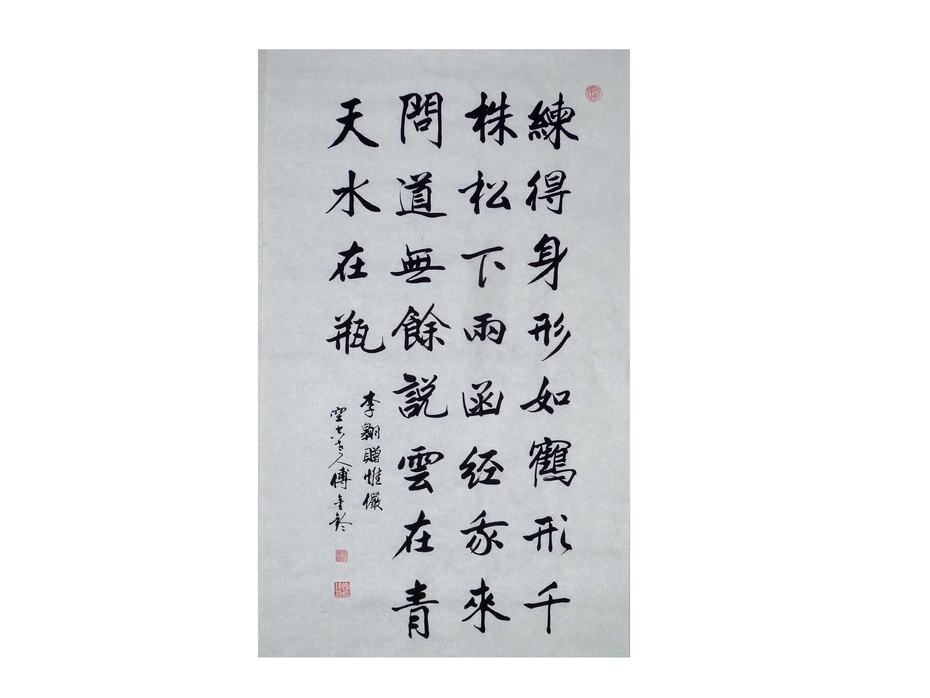 練得身形如鶴形千
株松下兩函经我來
問道無餘説雲在青
天水在瓶
李翱贈惟儼
人傅